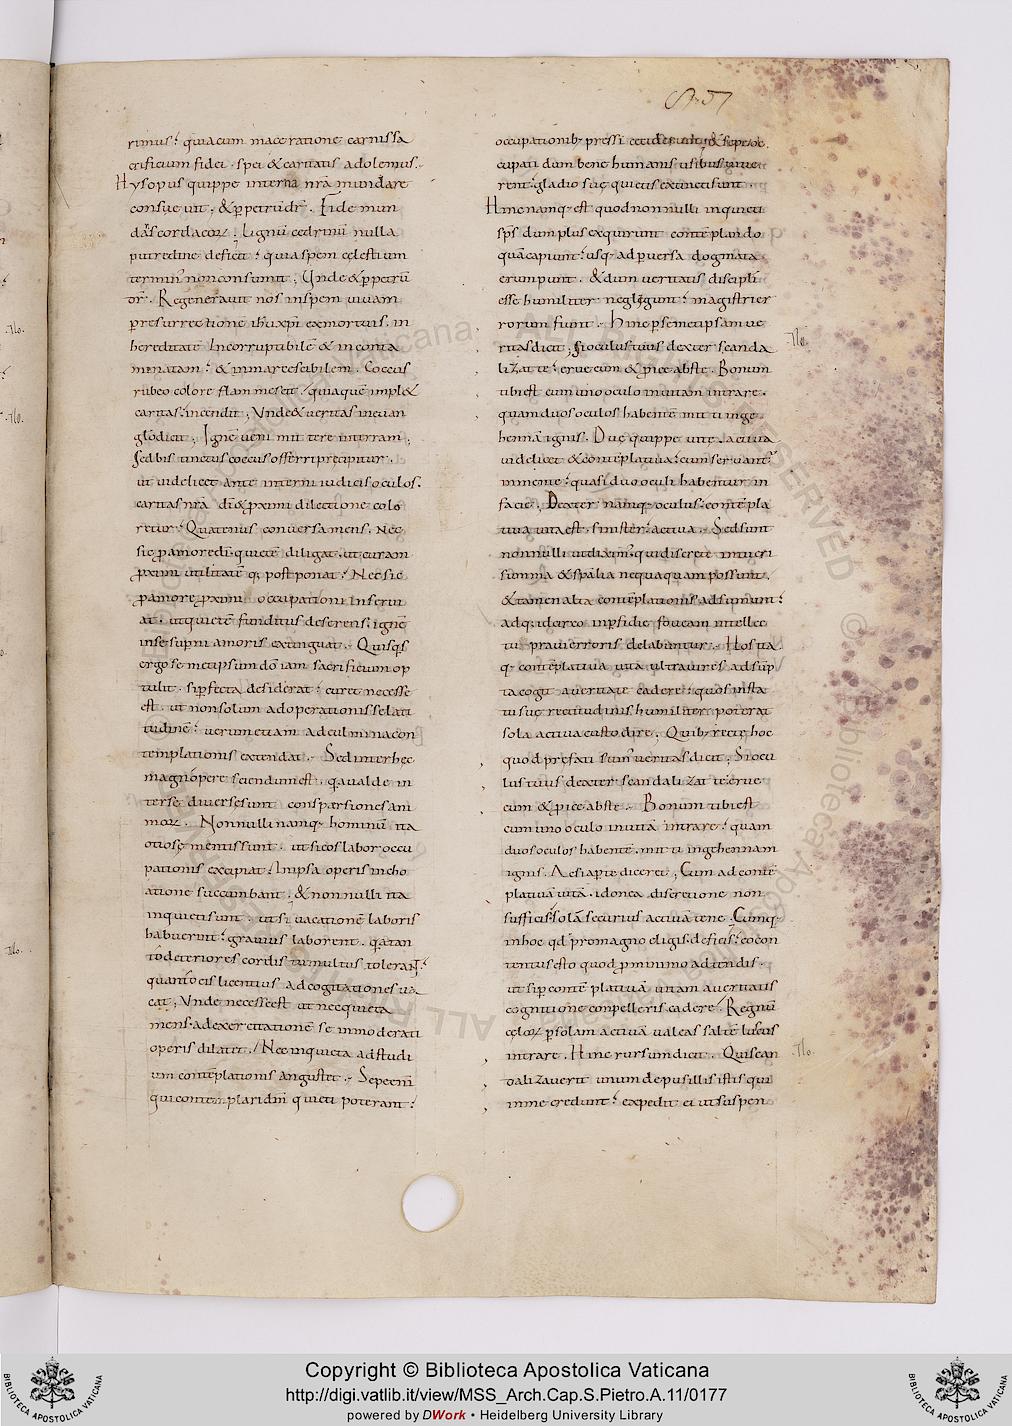 rimus; quia cum maceratione carnis sa
crificium fidei. spei & caritatis adolemus.
Hysopus quippe interna nr̄a mundare
consueuit. & ꝑ petrū dr̄. Fide mun
dans corda eoꝝ. Lignū cedrinū nulla
putredine deficit; quia spem celestium
terminꝰ non consumit; Unde & ꝑ petrū
dr̄. Regenerauit nos in spem uiuam
ꝑ resurrectionē ihū xp̄i ex mortuis. in
hereditatē incorruptibilē & inconta
minatam; & inmarcescibilem. Coccus
rubeo colore flammescit; quia quē impl&
caritas. incendit; Unde & ueritas in euan
glō dicit; Ignē ueni mittere in terram;
Sed bis tinctus coccus offerri precipitur.
ut uidelicet ante interni iudicis oculos.
caritas nr̄a dī & ꝓximi dilectione colo
retur; Quatenus conuersa mens. Nec
sic ꝓ amore dī quietē diligat. ut curam
ꝓximi utilitatē q; postponat; Nec sic
ꝓ amore ꝓximi occupationi inserui
at. ut quietē funditus deserens. ignē
in se superni amoris extinguat. Quisq̄s
ergo semetipsum dō iam sacrificium op
tulit. si ꝑfecta desiderat; curet necesse
est. ut non solum ad operationis se lati
tudinē; uerum etiam ad culmina con
templationis extendat. Sed inter hęc
magnopere sciendum est. q̄a ualde in
ter se diuersę sunt conspersiones ani
moꝝ. Nonnulli namq; hominū ita
otiosę mentis sunt. ut si eos labor occu
pationis excipiat; In ipsa operis incho
atione succumbant. & nonnulli ita
inquieti sunt. ut si uacationē laboris
habuerint; grauius laborent. q̄a tan
to deteriores cordis tumultus tolerant;
quanto eis licentius ad cogitationes ua
cat; Unde necesse est ut nec quieta
mens. ad exercitationē se inmoderati
operis dilatet. Nec inquieta ad studi
um contēplationis angustet. Sepe enī
qui contemplari dm̄ quieti poterant;
occupationib; pressi ceciderunt; & sepe oc
cupati dum bene humanis usibus uiue
rent; gladio suę quietis extincti sunt.
Hinc namq; est quod nonnulli inquieti
sp̄s dum plus exquirunt contēplando
quā capiunt; usq; ad ꝑuersa dogmata
erumpunt. & dum ueritatis discipli
esse humiliter neglegunt; magistri er
rorum fiunt. Hinc ꝑ semetipsam ue
ritas dicit; si oculus tuus dexter scanda
lizat te; erue eum & ꝓice abs te. Bonum
tibi est cum uno oculo in uitam intrare.
quam duos oculos habentē mitti in ge
hennā ignis. Duę quippe uitę. actiua
uidelicet & contēplatiua; cum seruantꝰ
in mente; quasi duo oculi habentur in
facie. Dexter namq; oculus; contēpla
tiua uita est. sinister; actiua. Sed sunt
nonnulli ut diximꝰ. qui discrete intueri
summa & sp̄alia nequaquam possunt.
& tamen alta contēplationis adsumunt;
adq; idcirco in ꝑfidię foueam intellec
tus praui errore delabuntur. Hos ita
q; contēplatiua uita ultra uires adsūp
ta cogit a ueritate cadere; quos in sta
tu suę rectitudinis humiliter poterat
sola actiua custodire. Quib; recte hoc
quod prefati sumꝰ ueritas dicit; Si ocu
lus tuus dexter scandalizat te; erue
eum & ꝓice abs te. Bonum tibi est
cum uno oculo in uitā intrare; quam
duos oculos habentē. mitti in gehennam
ignis. Ac si aꝑte diceret; Cum ad contē
platiuā uitā. idonea discretione non
sufficis; solā securius actiuā tene. Cumq;
in hoc qd̄ pro magno eligis. deficis; eo con
tentus esto quod ꝓ minimo adtendis.
ut si ꝑ contēplatiuā uitam a ueritatis
cognitione conpelleris cadere; Regnū
cęloꝝ ꝑ solam actiuā ualeas saltē luscus
intrare. Hinc rursum dicit. Qui scan
dalizauerit unum de pusillis istis qui
in me credunt; expedit ei ut suspen
Copyright © Biblioteca Apostolica Vaticana
http://digi.vatlib.it/view/MSS_Arch.Cap.S.Pietro.A.11/0177
powered by DWork • Heidelberg University Library
BIBLIOTECA APOSTOLICA VATICANA
BIBLIOTECA APOSTOLICA VATICANA